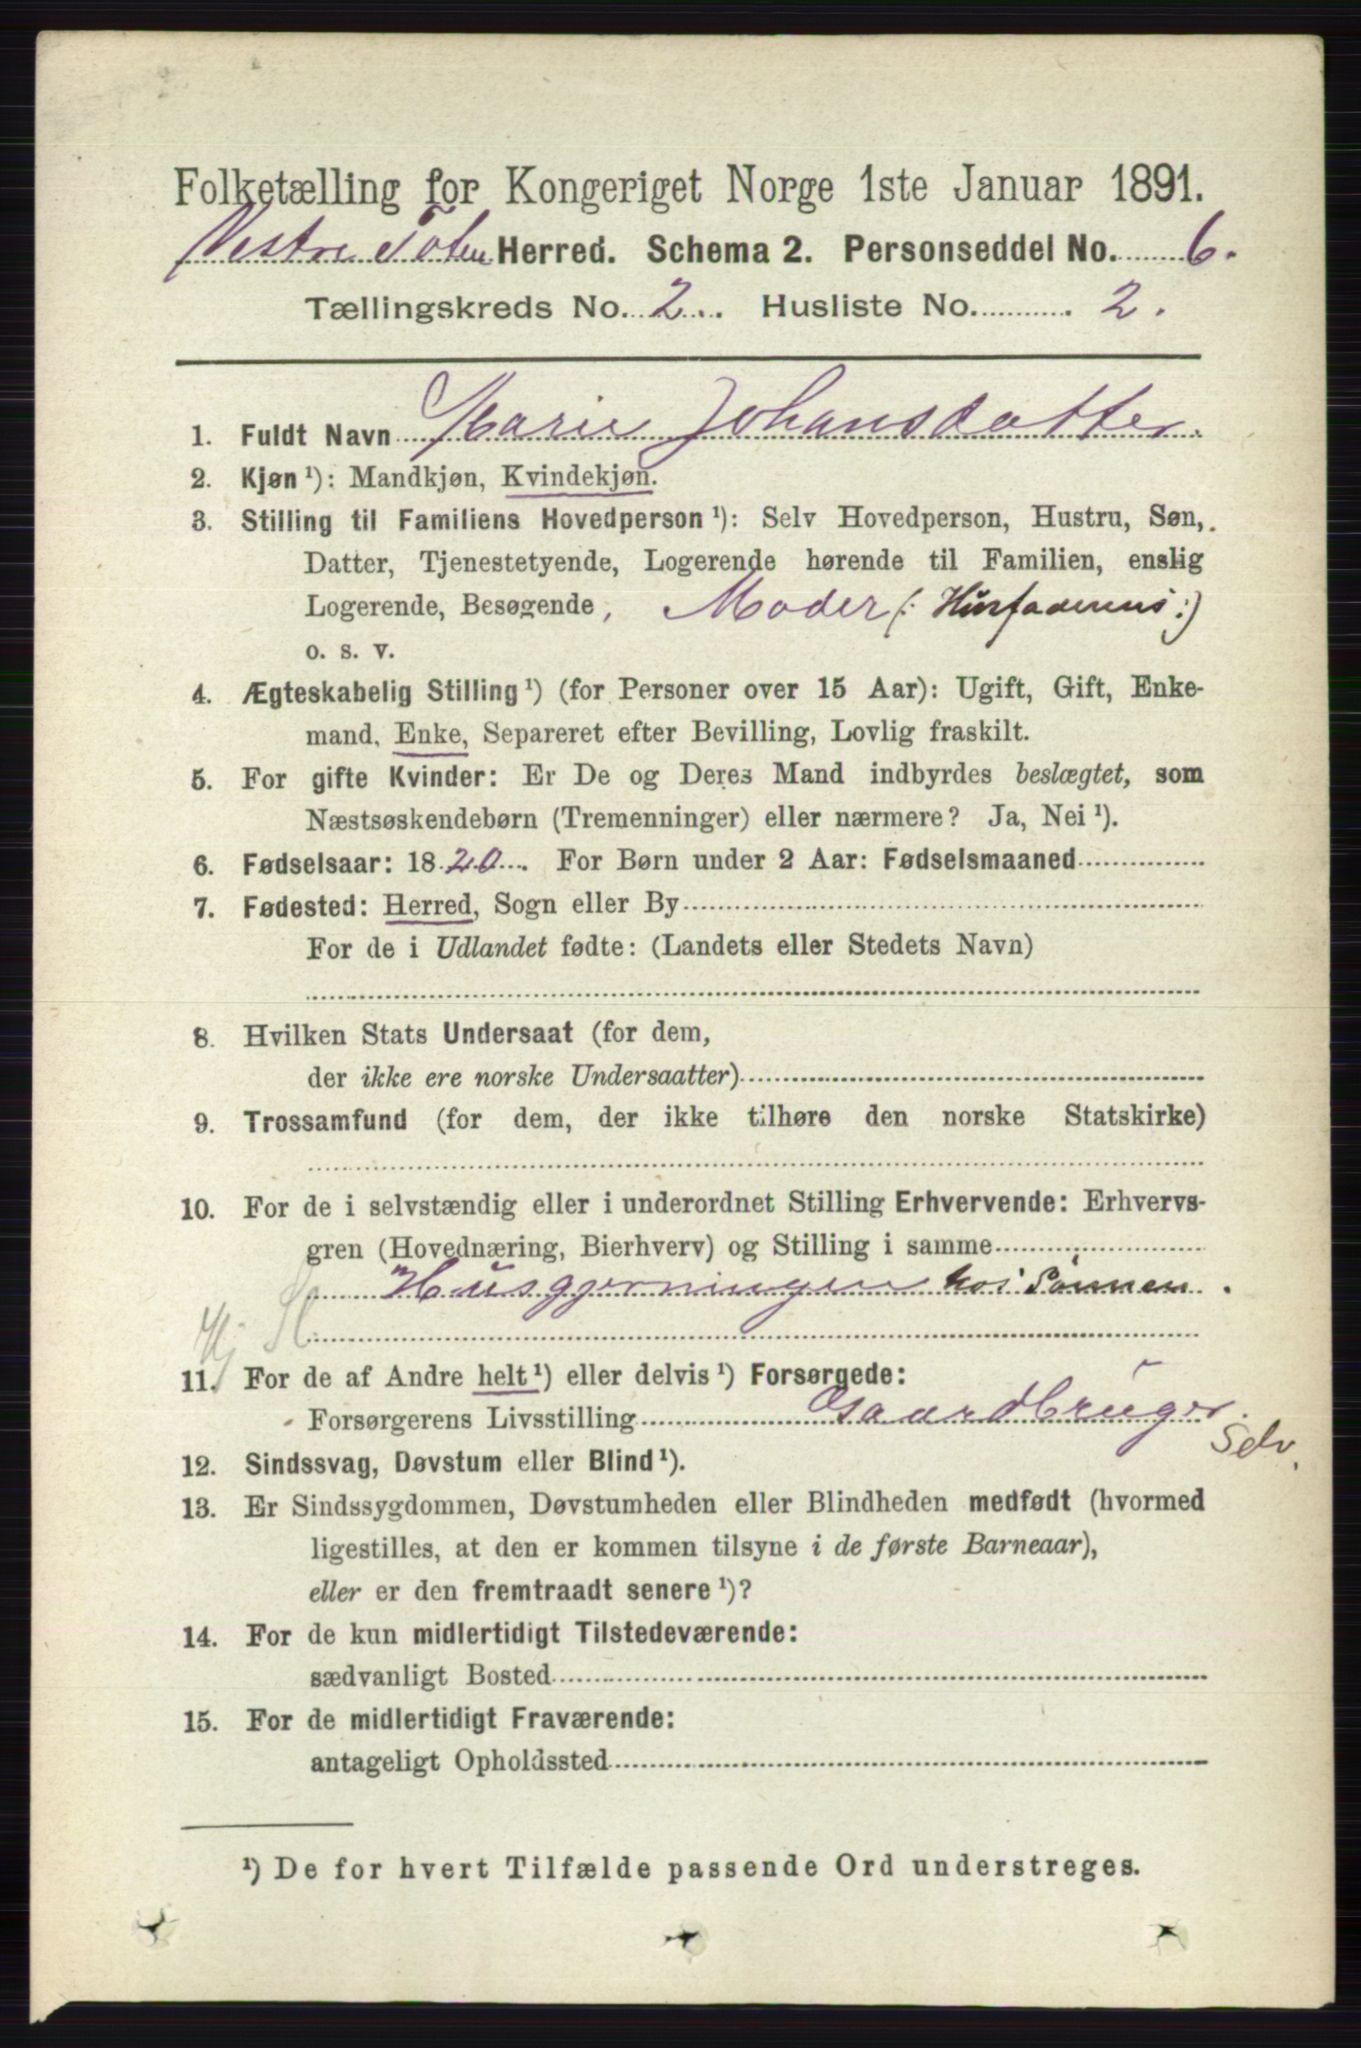 Folketælling for Kongeriget Norge 1ste Januar 1891.
Vestre Toten Herred. Schema 2. Personseddel No. 6.
Tællingskreds No. 2. Husliste No. 2.
1. Fuldt Navn Marie Johansdatter.
2. Kjøn ¹): Mandkjøn, Kvindekjøn.
3. Stilling til Familiens Hovedperson ¹): Selv Hovedperson, Hustru, Søn,
Datter, Tjenestetyende, Logerende hørende til Familien, enslig
Logerende, Besøgende, Moder (: Husfaderens :)
o. s. v.
4. Ægteskabelig Stilling ¹) (for Personer over 15 Aar): Ugift, Gift, Enke-
mand, Enke, Separeret efter Bevilling, Lovlig fraskilt.
5. For gifte Kvinder: Er De og Deres Mand indbyrdes beslægtet, som
Næstsøskendebørn (Tremenninger) eller nærmere? Ja, Nei ¹).
6. Fødselsaar: 1820. For Børn under 2 Aar: Fødselsmaaned
7. Fødested: Herred, Sogn eller By
For de i Udlandet fødte: (Landets eller Stedets Navn)
8. Hvilken Stats Undersaat (for dem,
der ikke ere norske Undersaatter)
9. Trossamfund (for dem, der ikke tilhøre den norske Statskirke)
10. For de i selvstændig eller i underordnet Stilling Erhvervende: Erhvervs-
gren (Hovednæring, Bierhverv) og Stilling i samme
Husgjerningen hos Sönnen.
11. For de af Andre helt ¹) eller delvis ¹) Forsørgede:
Forsørgerens Livsstilling Gaardbruger.
Selv.
12. Sindssvag, Døvstum eller Blind ¹).
13. Er Sindssygdommen, Døvstumheden eller Blindheden medfødt (hvormed
ligestilles, at den er kommen tilsyne i de første Barneaar),
eller er den fremtraadt senere ¹)?
14. For de kun midlertidigt Tilstedeværende:
sædvanligt Bosted
15. For de midlertidigt Fraværende:
antageligt Opholdssted
¹) De for hvert Tilfælde passende Ord understreges.